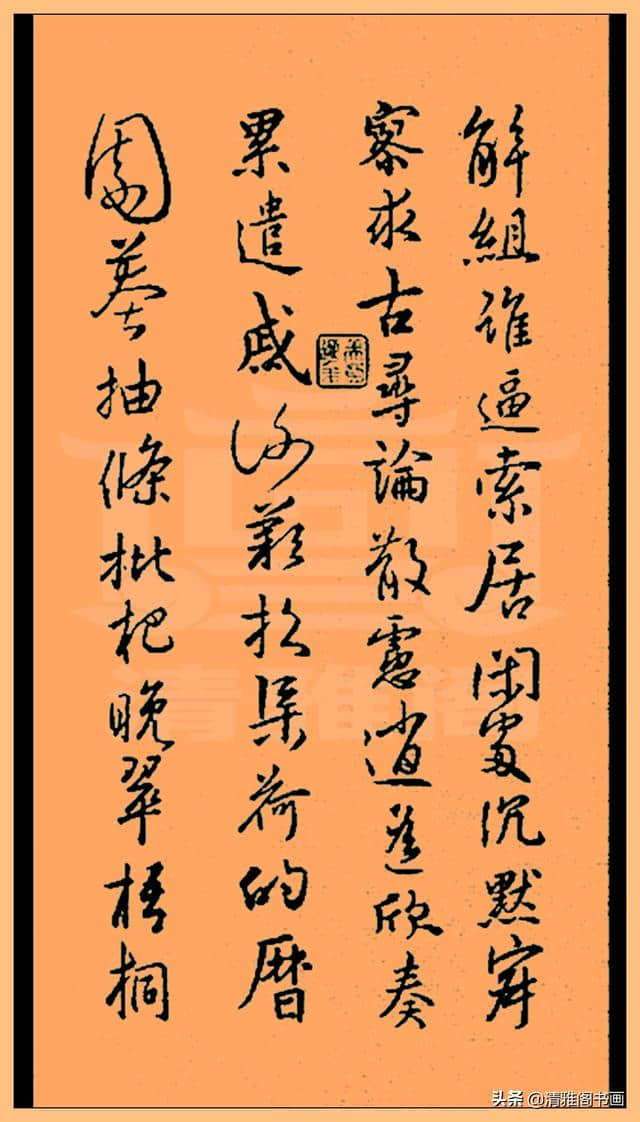 解組誰逼索居閑處沉默寂
寥求古尋論散慮逍遙欣奏
累遣慼謝歡招渠荷的曆
園莽抽條枇杷晚翠梧桐
清雅阁
头条 @清雅阁书画